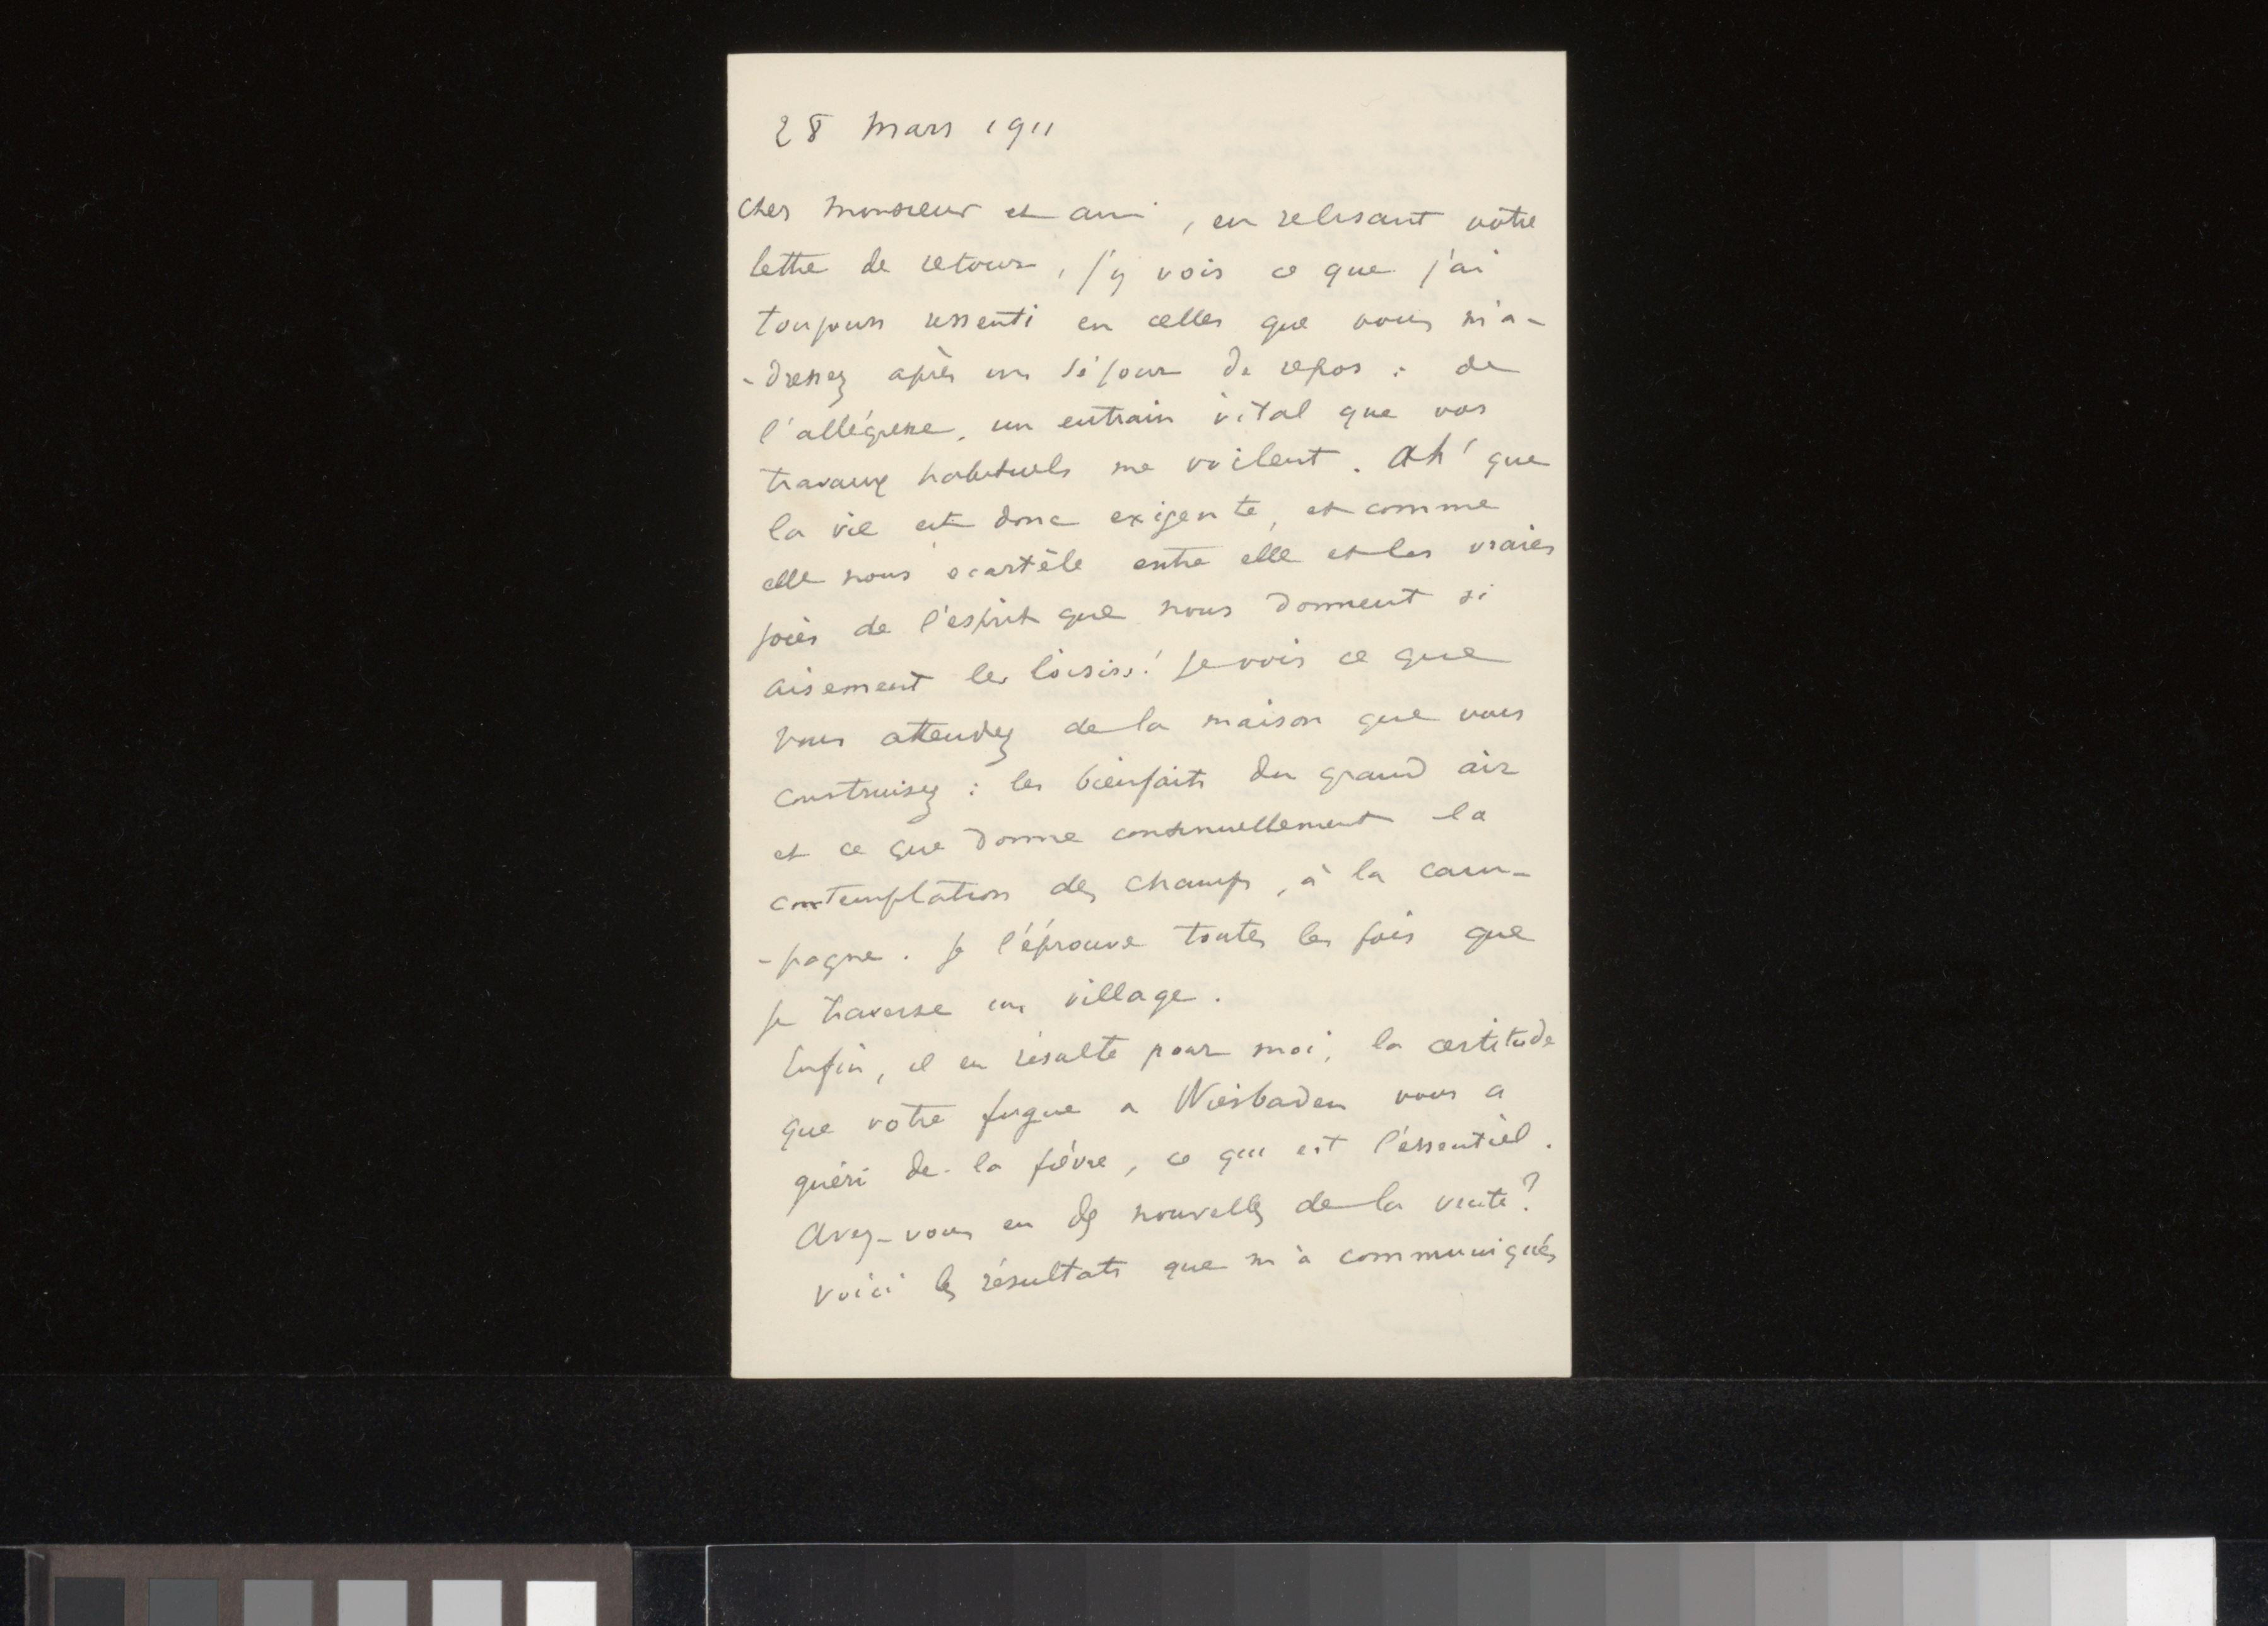 28 mars 1911
Cher Monsieur et ami, en relisant votre
lettre de retour, j'y vois ce que j'ai
toujours ressenti en celles que vous m'a-
-dressez après un séjour de repos : de
l'allégresse, un entrain vital que vos
travaux habituels me voilent. Ah ! que
la vie est donc exigente, et comme
elle nous écartèle entre elle et les vraies
joies de l'esprit que nous donnent si
aisement les loisirs ! Je vois ce que
vous attendez de la maison que vous
construisez : les bienfaits du grand air
et ce que donne continuellement la
contemplation des champs, à la cam-
-pagne. Je l'éprouve toutes les fois que
je traverse un village.
Enfin, il en résulte pour moi, la certitude
que votre fugue a Wiesbaden vous a
guéri de la fièvre, ce qui est l'essentiel.
Avez-vous eu des nouvelles de la vente ?
Voici les résultats que m'a communiqués